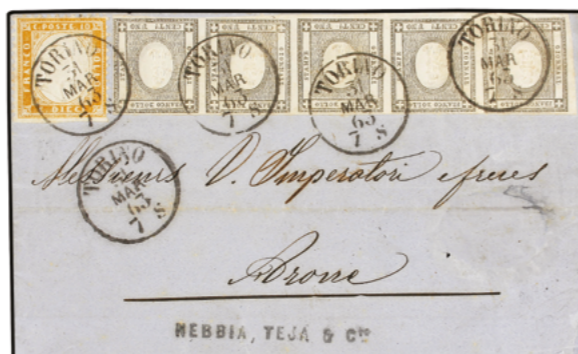 FRANCO
TORINO
31
MAR
63
7 S
TORINO
MAR
63
7 S
TORINO
31
MAR
63
7 S
TORINO
31
MAR
63
7 S
TORINO
MAR
63
7 S
Messieurs V. Imperatori freres
Arone
NEBBIA, TEJA & Cie